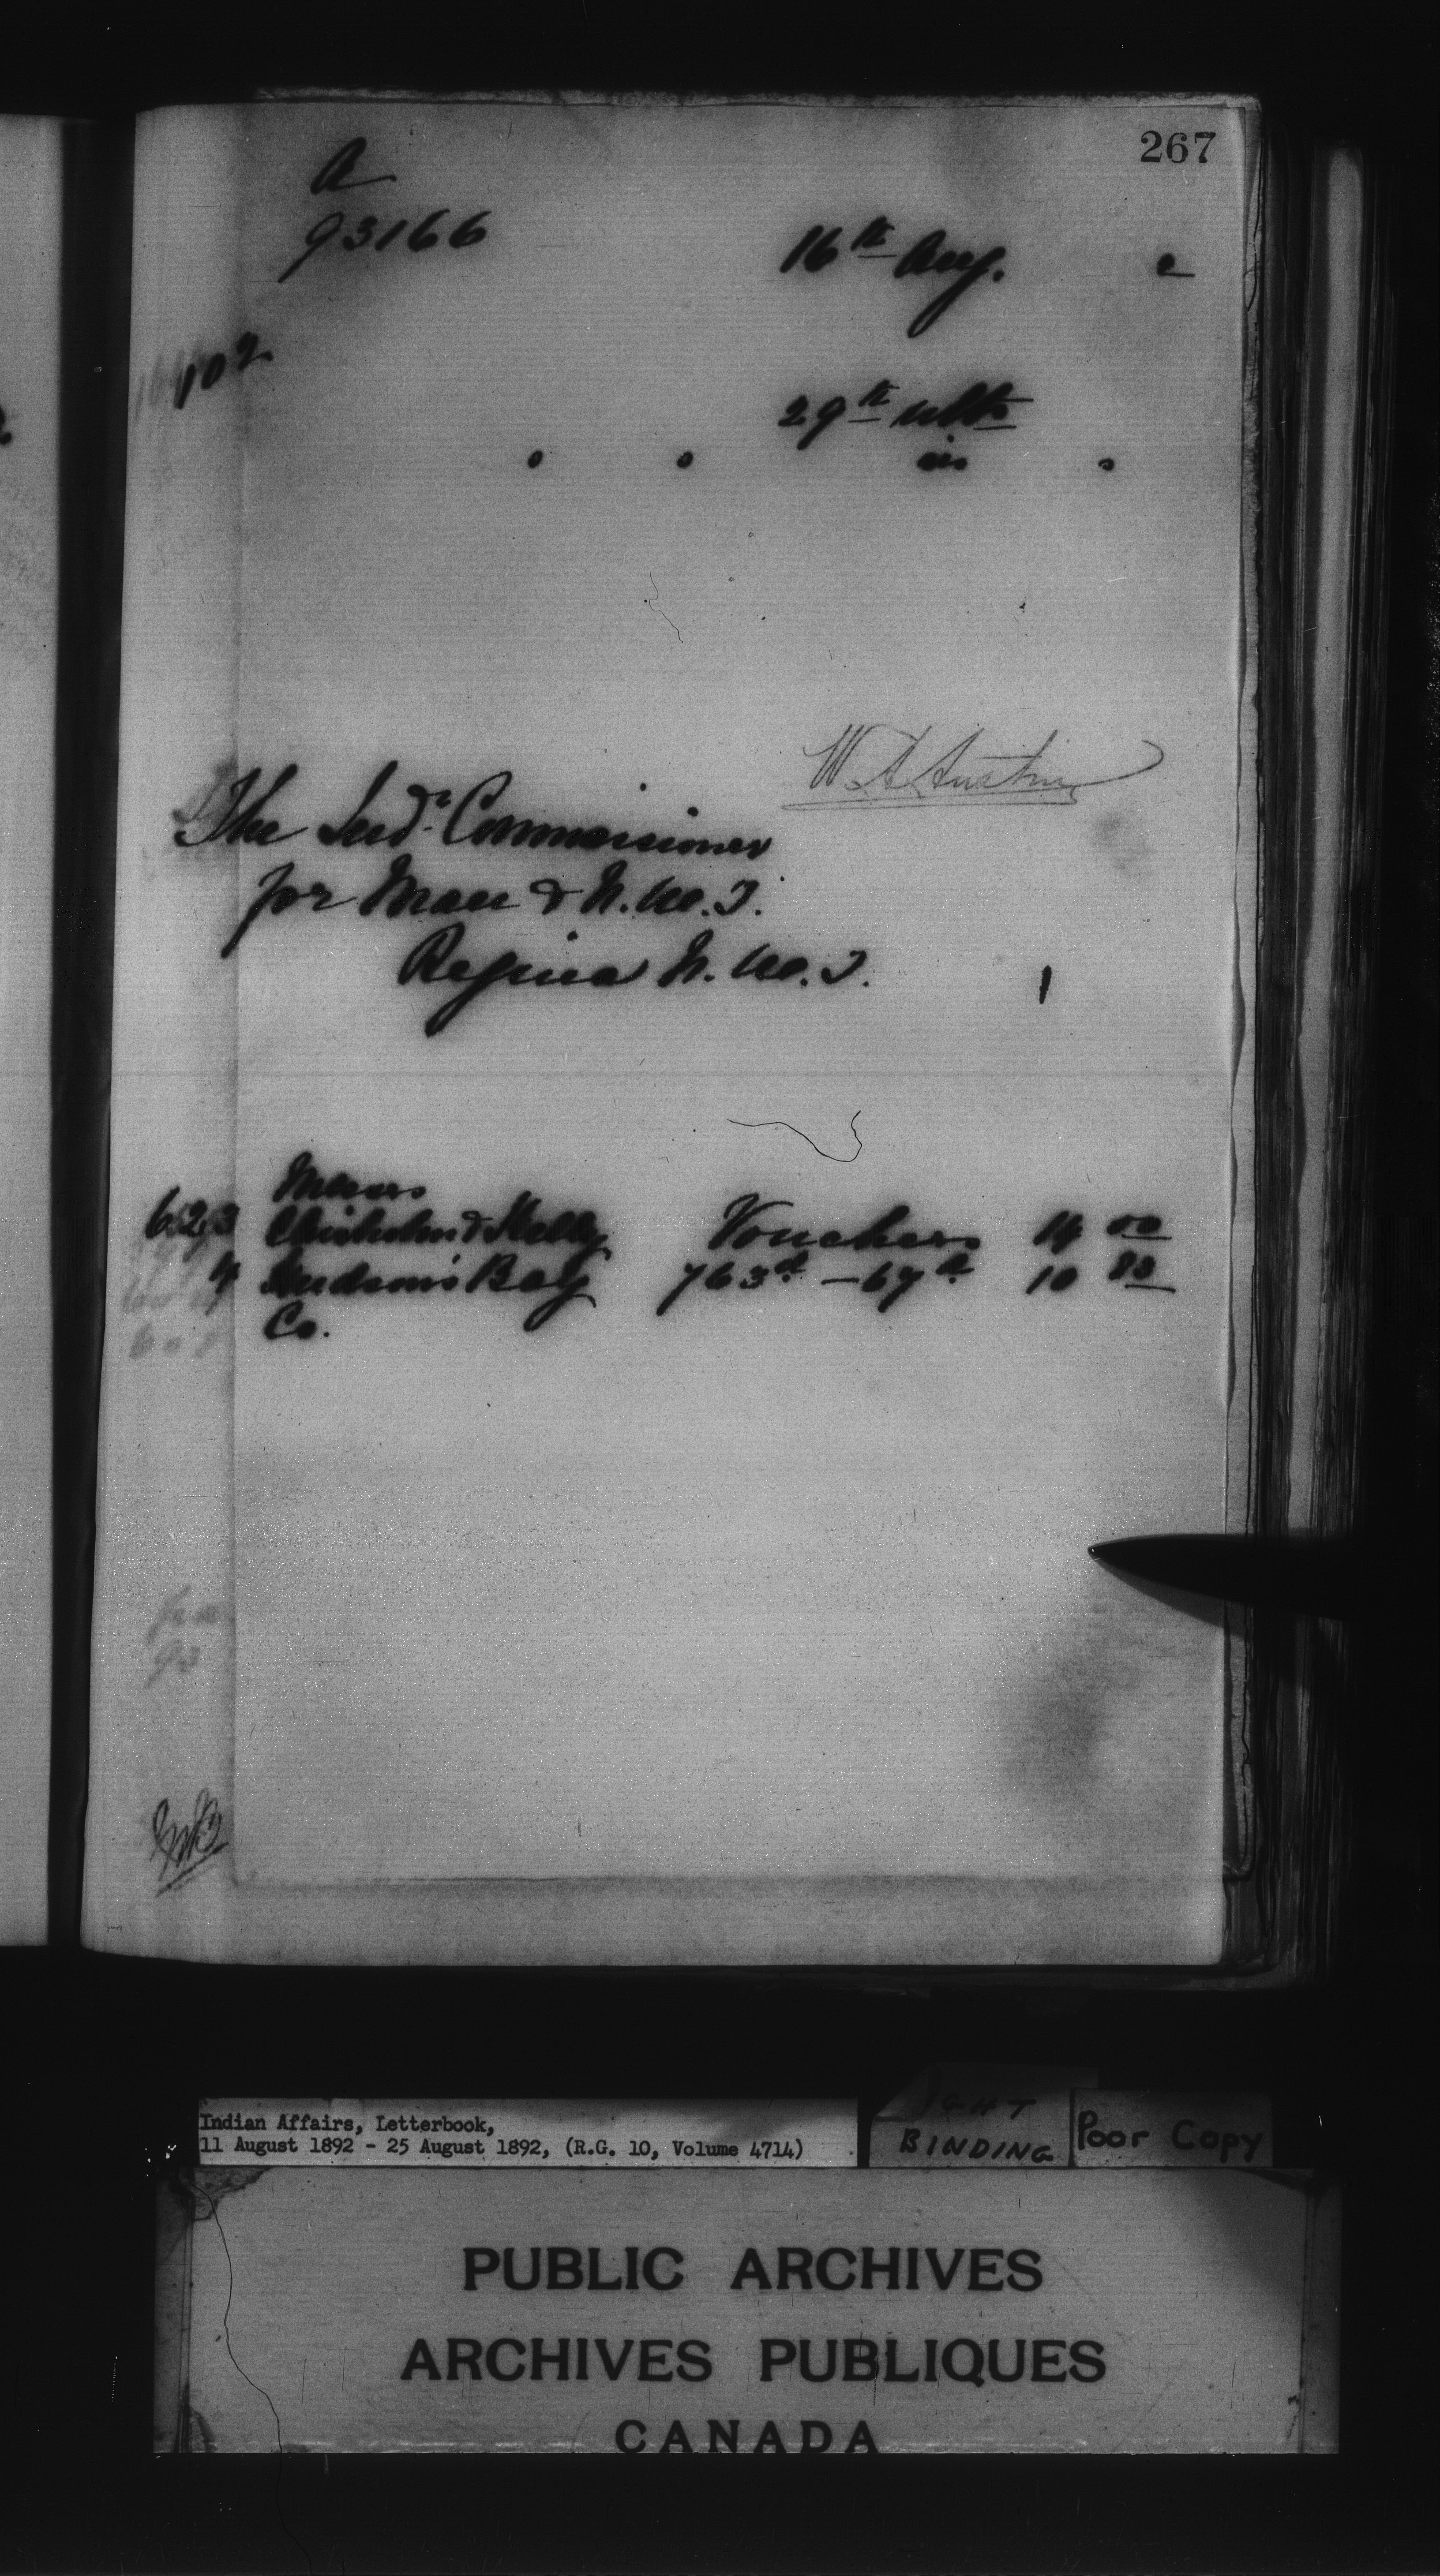 267
A
93166
16th Aug. 2
102
29th ulto
is
W A Austin
The Ind: Commissioner
for Man & N.W.T.
Regina N.W.T.
Messrs
623 Chisholm & Kelly Vouchers 14 00
4 Hudson's Bay 763d - 67d 10 83
Co.
Indian Affairs, Letterbook,
11 August 1892 - 25 August 1892, (R.G. 10, Volume 4714)
BINDING
Poor Copy
PUBLIC ARCHIVES
ARCHIVES PUBLIQUES
CANADA